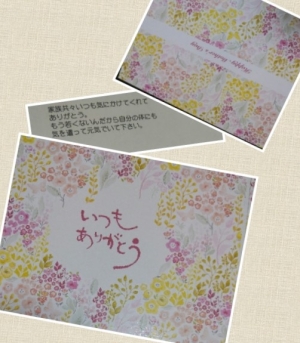 Happy Mother's Day
家族共々いつも気にかけてくれて
ありがとう。
もう若くないんだから自分の体にも
気を遣って元気でいて下さい。
いつも
ありがとう